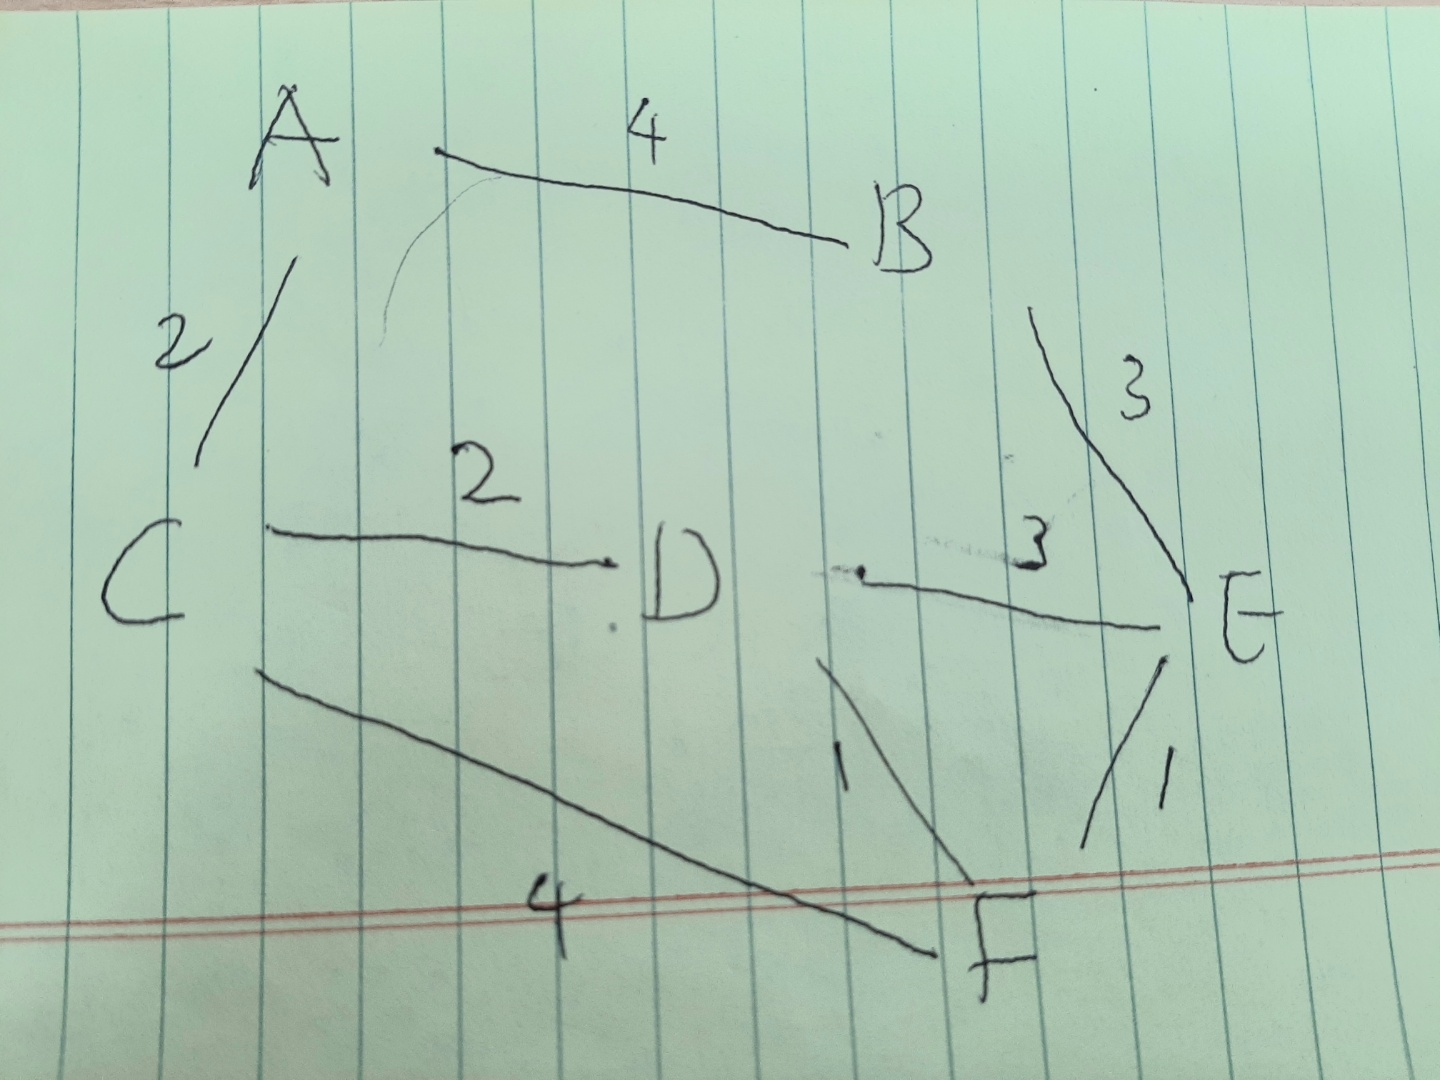 A 4
B
2 3
2 3
C D E
1 1
4 F